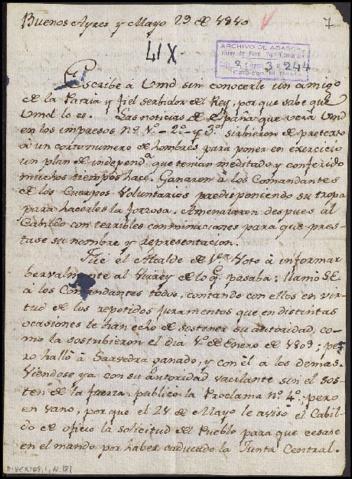 Buenos Ayres y Mayo 29 de 1810
7
LIX
ARCHIVO DE ABASCAL
3
244
Escribe à Vmd sin conocerle un amigo
de la Patria y fiel serbidor del Rey, por que sabe que
Vmd lo es. Las noticias de España que verà Vmd
en los impresos Nº 1º 2º y 3º sirbieron de pretexto
à un corto numero de hombres para poner en exercicio
un plan de independª que tenian meditado y conferido
muchos tiempos hace. Ganaron à los Comandantes
de los Cuerpos Voluntarios predisponiendo su tropa
para hacerles la forzosa. Amenazaron despues al
Cabildo con terribles conminaciones para que pres-
tase su nombre y representacion.
Fue el Alcalde de 1er Voto à informar
bervalmente al Virrey de lo q pasaba; llamó SE
à los Comandantes todos, contando con ellos en vir-
tud de los repetidos juramentos que en distintas
ocasiones le han echo de sostener su autoridad, co-
mo la sostubieron el dia 1º de Enero de 809; pe-
ro halló à Saavedra ganado, y con él à los demas.
Viendose ya con su autoridad vacilante sin el sos-
ten de la fuerza, publicó la Proclama nº 4º; pero
en vano, por que el 21 de Mayo le avisó el Cabil-
do de oficio la solicitud del Pueblo para que cesase
en el mando por haber caducado la Junta Central.